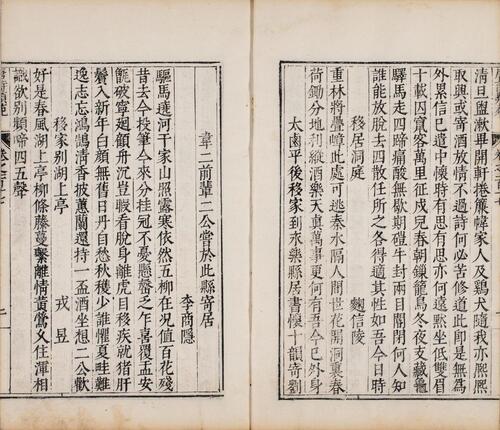 清旦盥漱畢開軒捲簾幃家人及雞犬隨我亦熙熙
取興或寄酒放情不過詩何必苦修道此即是無為
外累信已遣中懷時有思有思亦何遠黙坐低雙眉
十載囚竄客萬里征戍兒春朝鏁籠鳥冬夜支藏龜
驛馬走四蹄痛酸無歇期磑牛封兩目闇閉何人知
誰能放脫去四散任所之各得適其性如吾今日時
移居洞庭 麴信陵
重林將疊嶂此處可逃秦水隔人間世花開洞裏春
荷鋤分地利縱酒樂天真萬事更何有吾今已外身
大鹵平後移家到永樂縣居書懷十韻寄劉
韋二前輩二公嘗於此縣寄居
李商隱
驅馬遶河干家山照露寒依然五柳在况值百花殘
昔去今投筆今來分挂冠不憂懸罄之乍喜覆盂安
甑破寧迴顧舟沉豈暇看脫身離虎口移疾就猪肝
鬢入新年白顏無舊日丹自愁秋穫少誰懼夏畦難
逸志忘鴻鵠清香披蕙蘭還持一盃酒坐想二公歡
移家別湖上亭 戎昱
好是春風湖上亭柳條藤蔓繫離情黃鶯久住渾相
識欲別頻啼四五聲